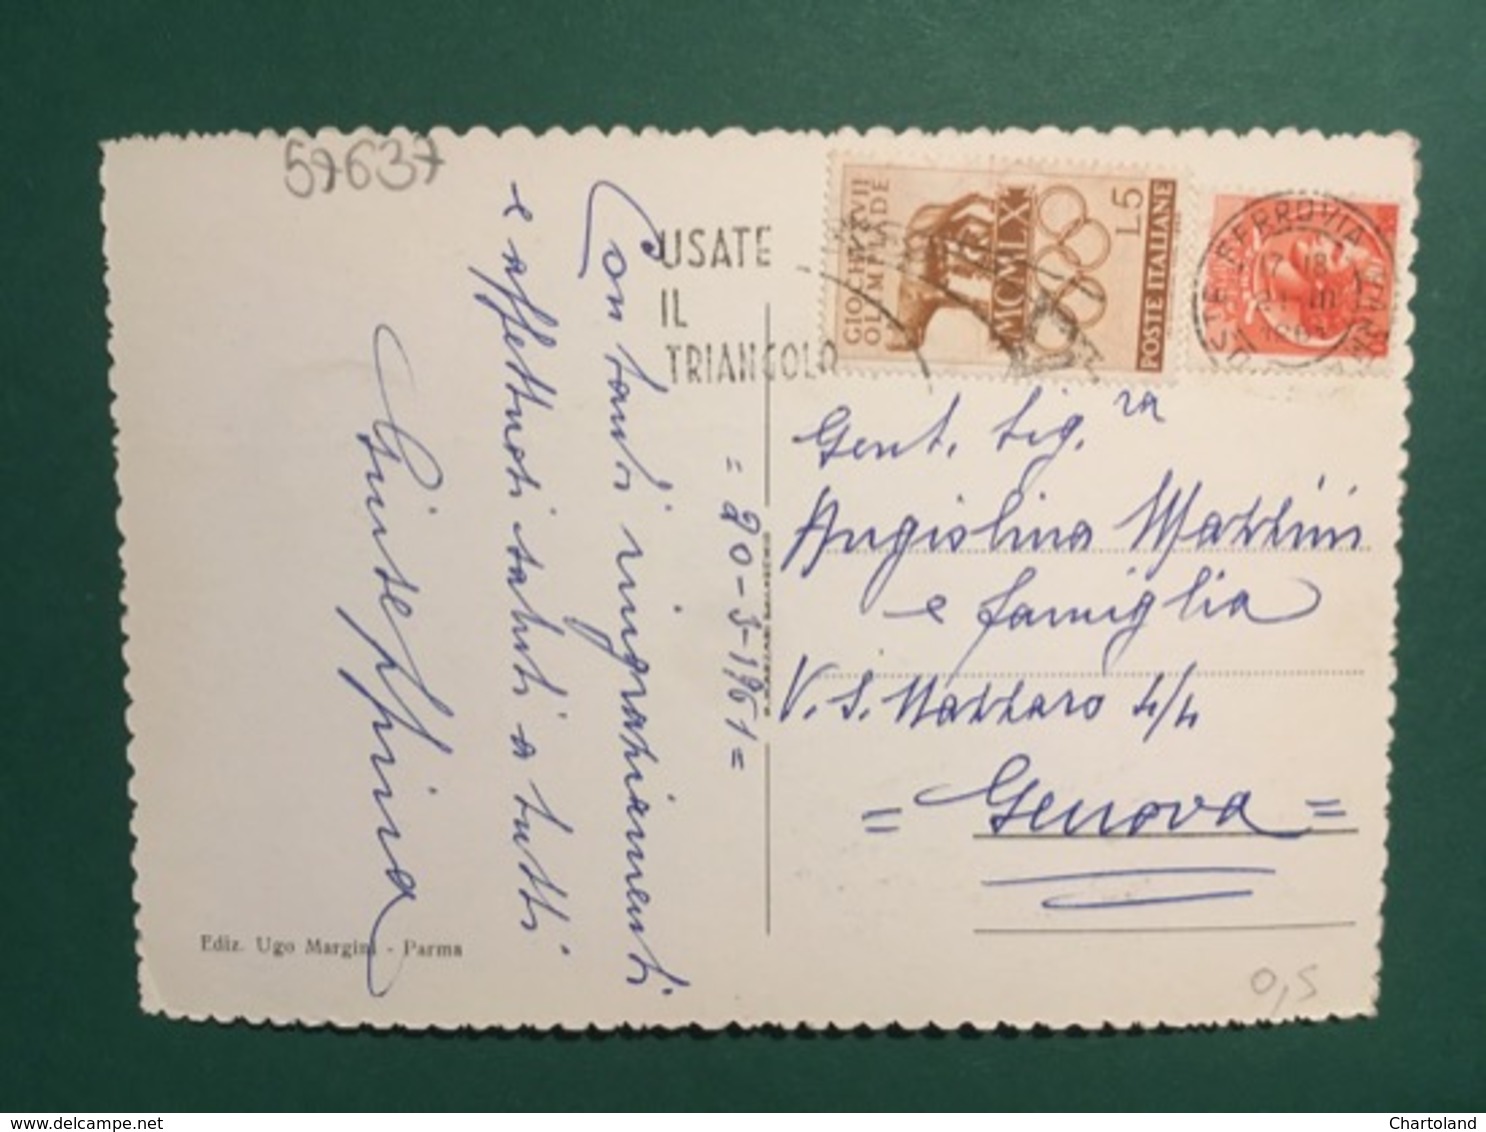 57637
USATE
IL
TRIANGOLO
GIOCHI XVII
OLIMPIADE
MCMLX
L.5
POSTE ITALIANE
FERROVIA
17-18
III
Con tanti ringraziamenti
e affettuosi saluti a tutti
Giuseppina
= 20-3-1961 =
Gent. Sig.ra
Angiolina Mazzini
e famiglia
V. S. Nazzaro 4/4
= Genova =
Ediz. Ugo Margini - Parma
0,5
delcampe.net
Chartoland